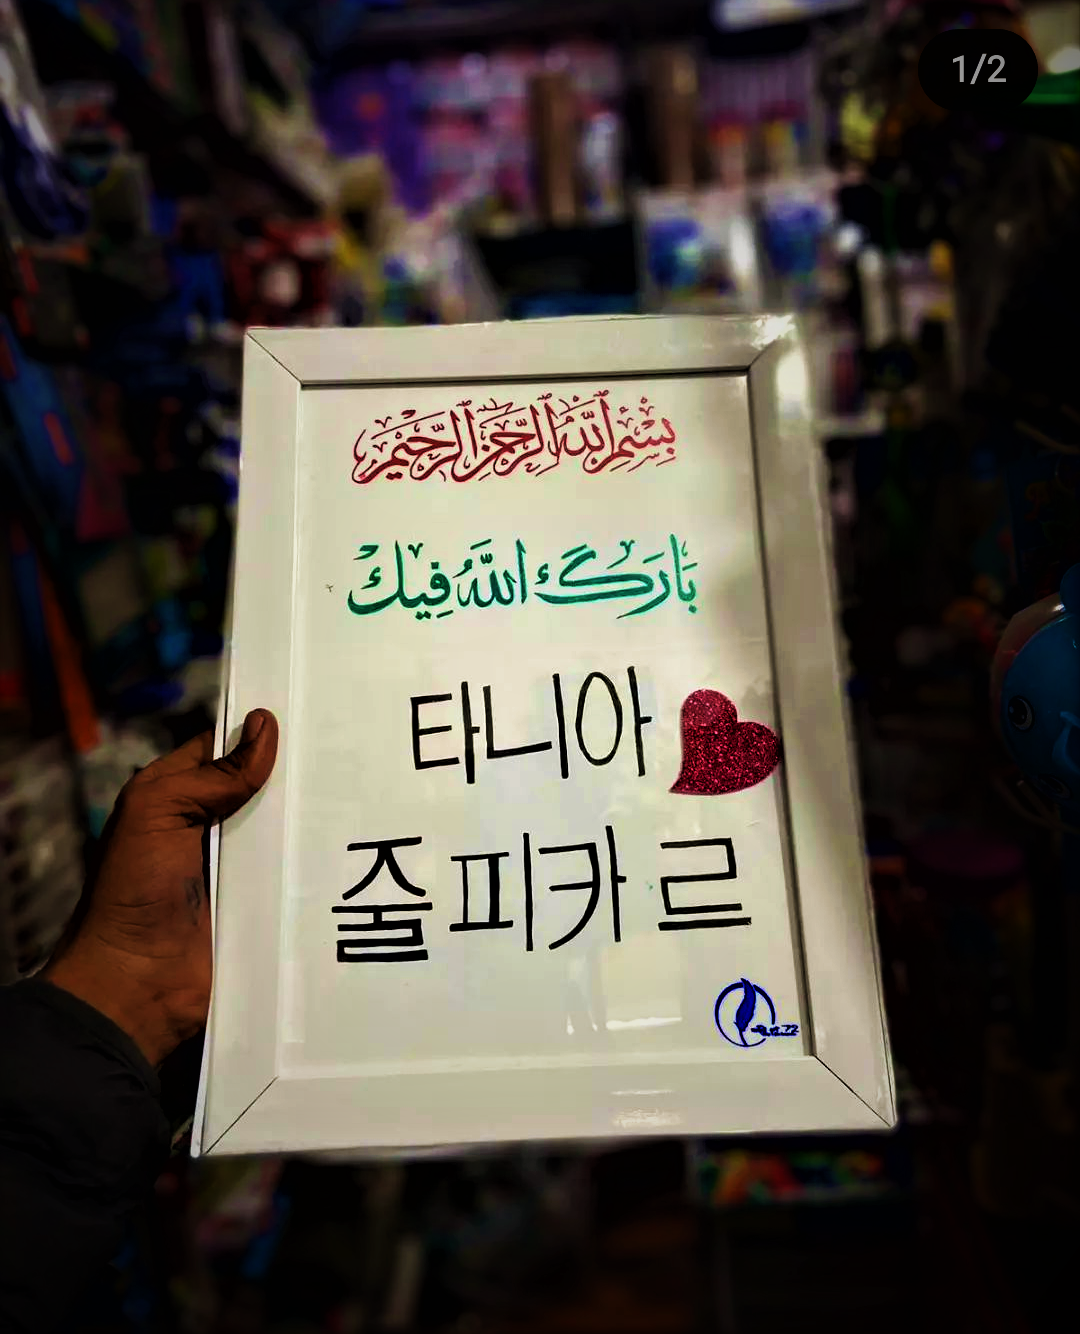 1/2
بِسْمِ ٱللَّهِ ٱلرَّحْمَٰنِ ٱلرَّحِيمِ
بَارَكَ اللَّهُ فِيكَ
타니아
줄피카르